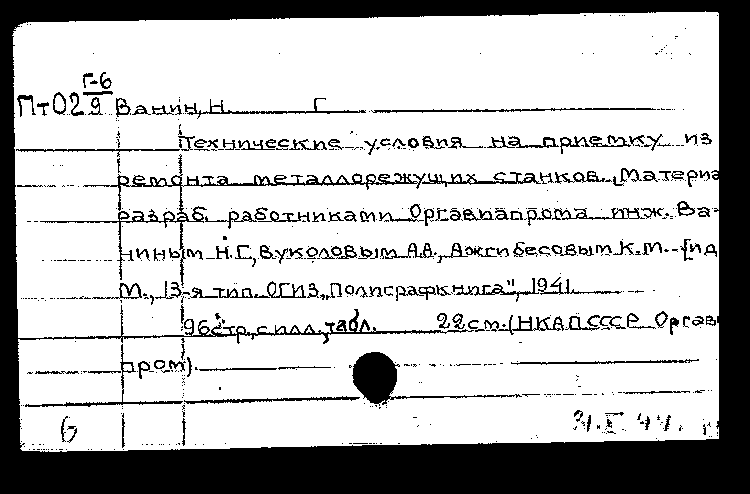 Г-6
ПтО2 9 Ванин, Н. Г
Технические условия на приемку из
ремонта металлорежущих станков. [Материа
разраб. работниками Оргавиапрома инж. Ва-
ниным Н.Г., Вуколовым А.А., Ажгибесовым К.М.-[ид
М., 13-я тип. ОГИЗ „Полиграфкнига", 1941.
96 стр., с илл., табл. 22 см. (НКАП СССР Оргав
пром).
6